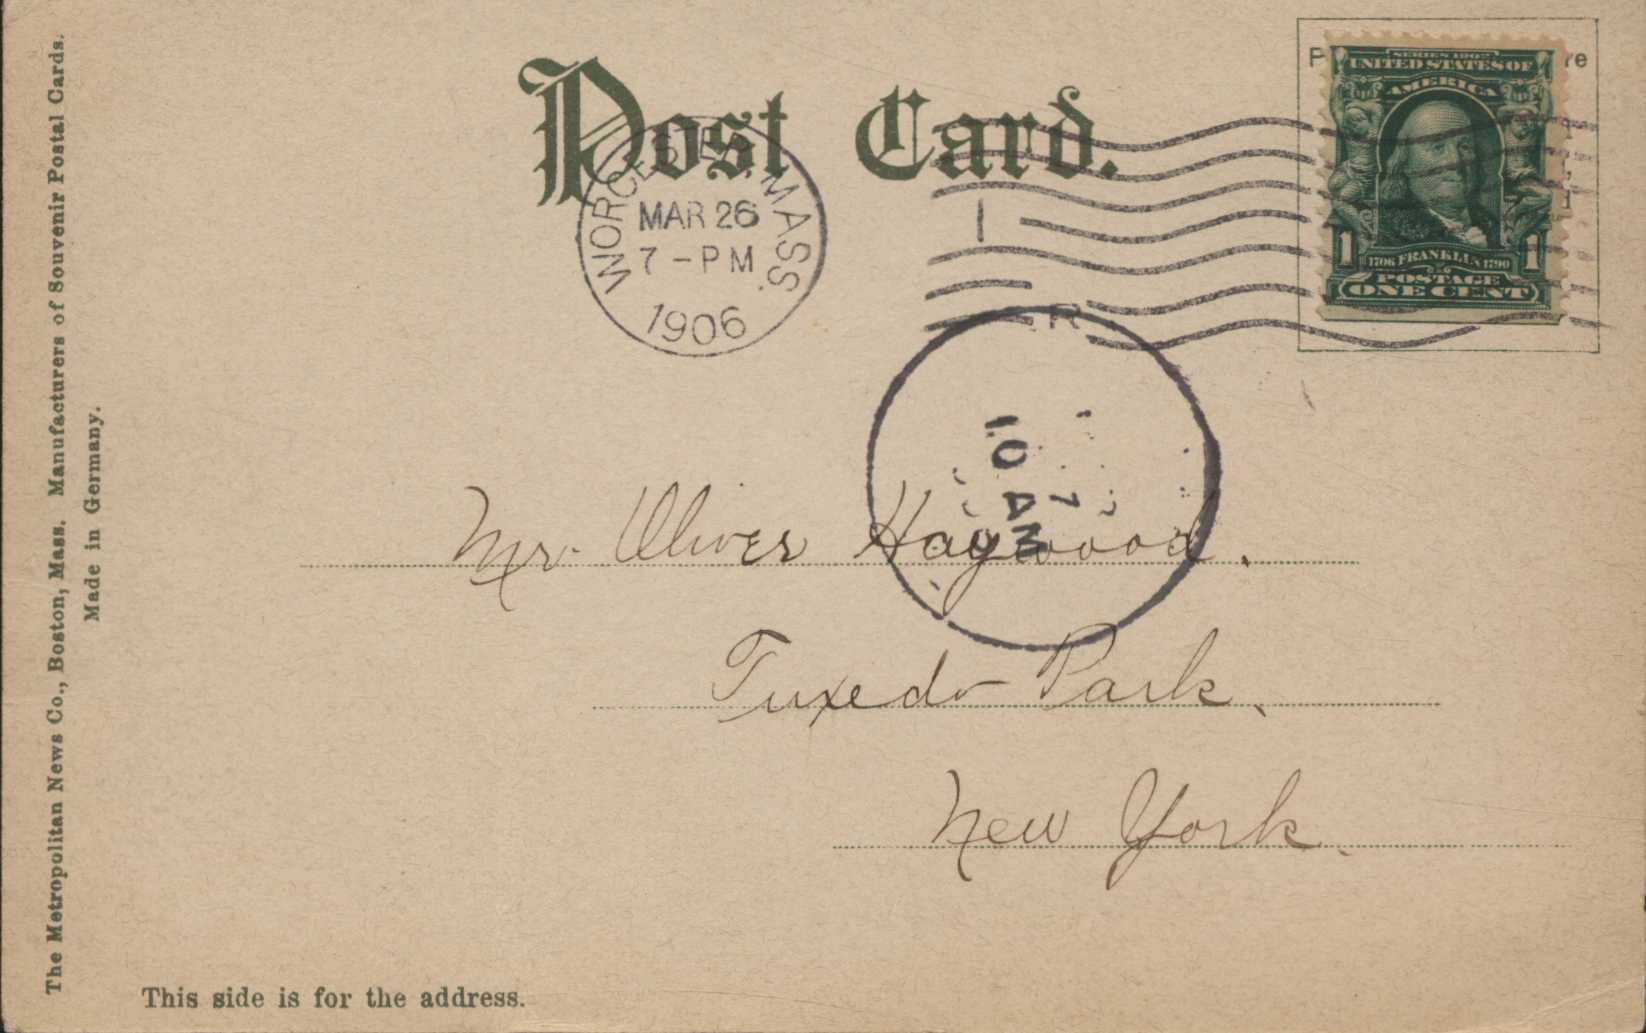 The Metropolitan News Co., Boston, Mass. Manufacturers of Souvenir Postal Cards.
Made in Germany.
Post Card.
WORCESTER, MASS.
MAR 26
7 - PM
1906
1
SERIES 1902
UNITED STATES OF
AMERICA
1 1
1706 FRANKLIN 1790
POSTAGE
ONE CENT
R
7
10 AM
Mr. Oliver Haywood.
Tuxedo Park.
New York.
This side is for the address.